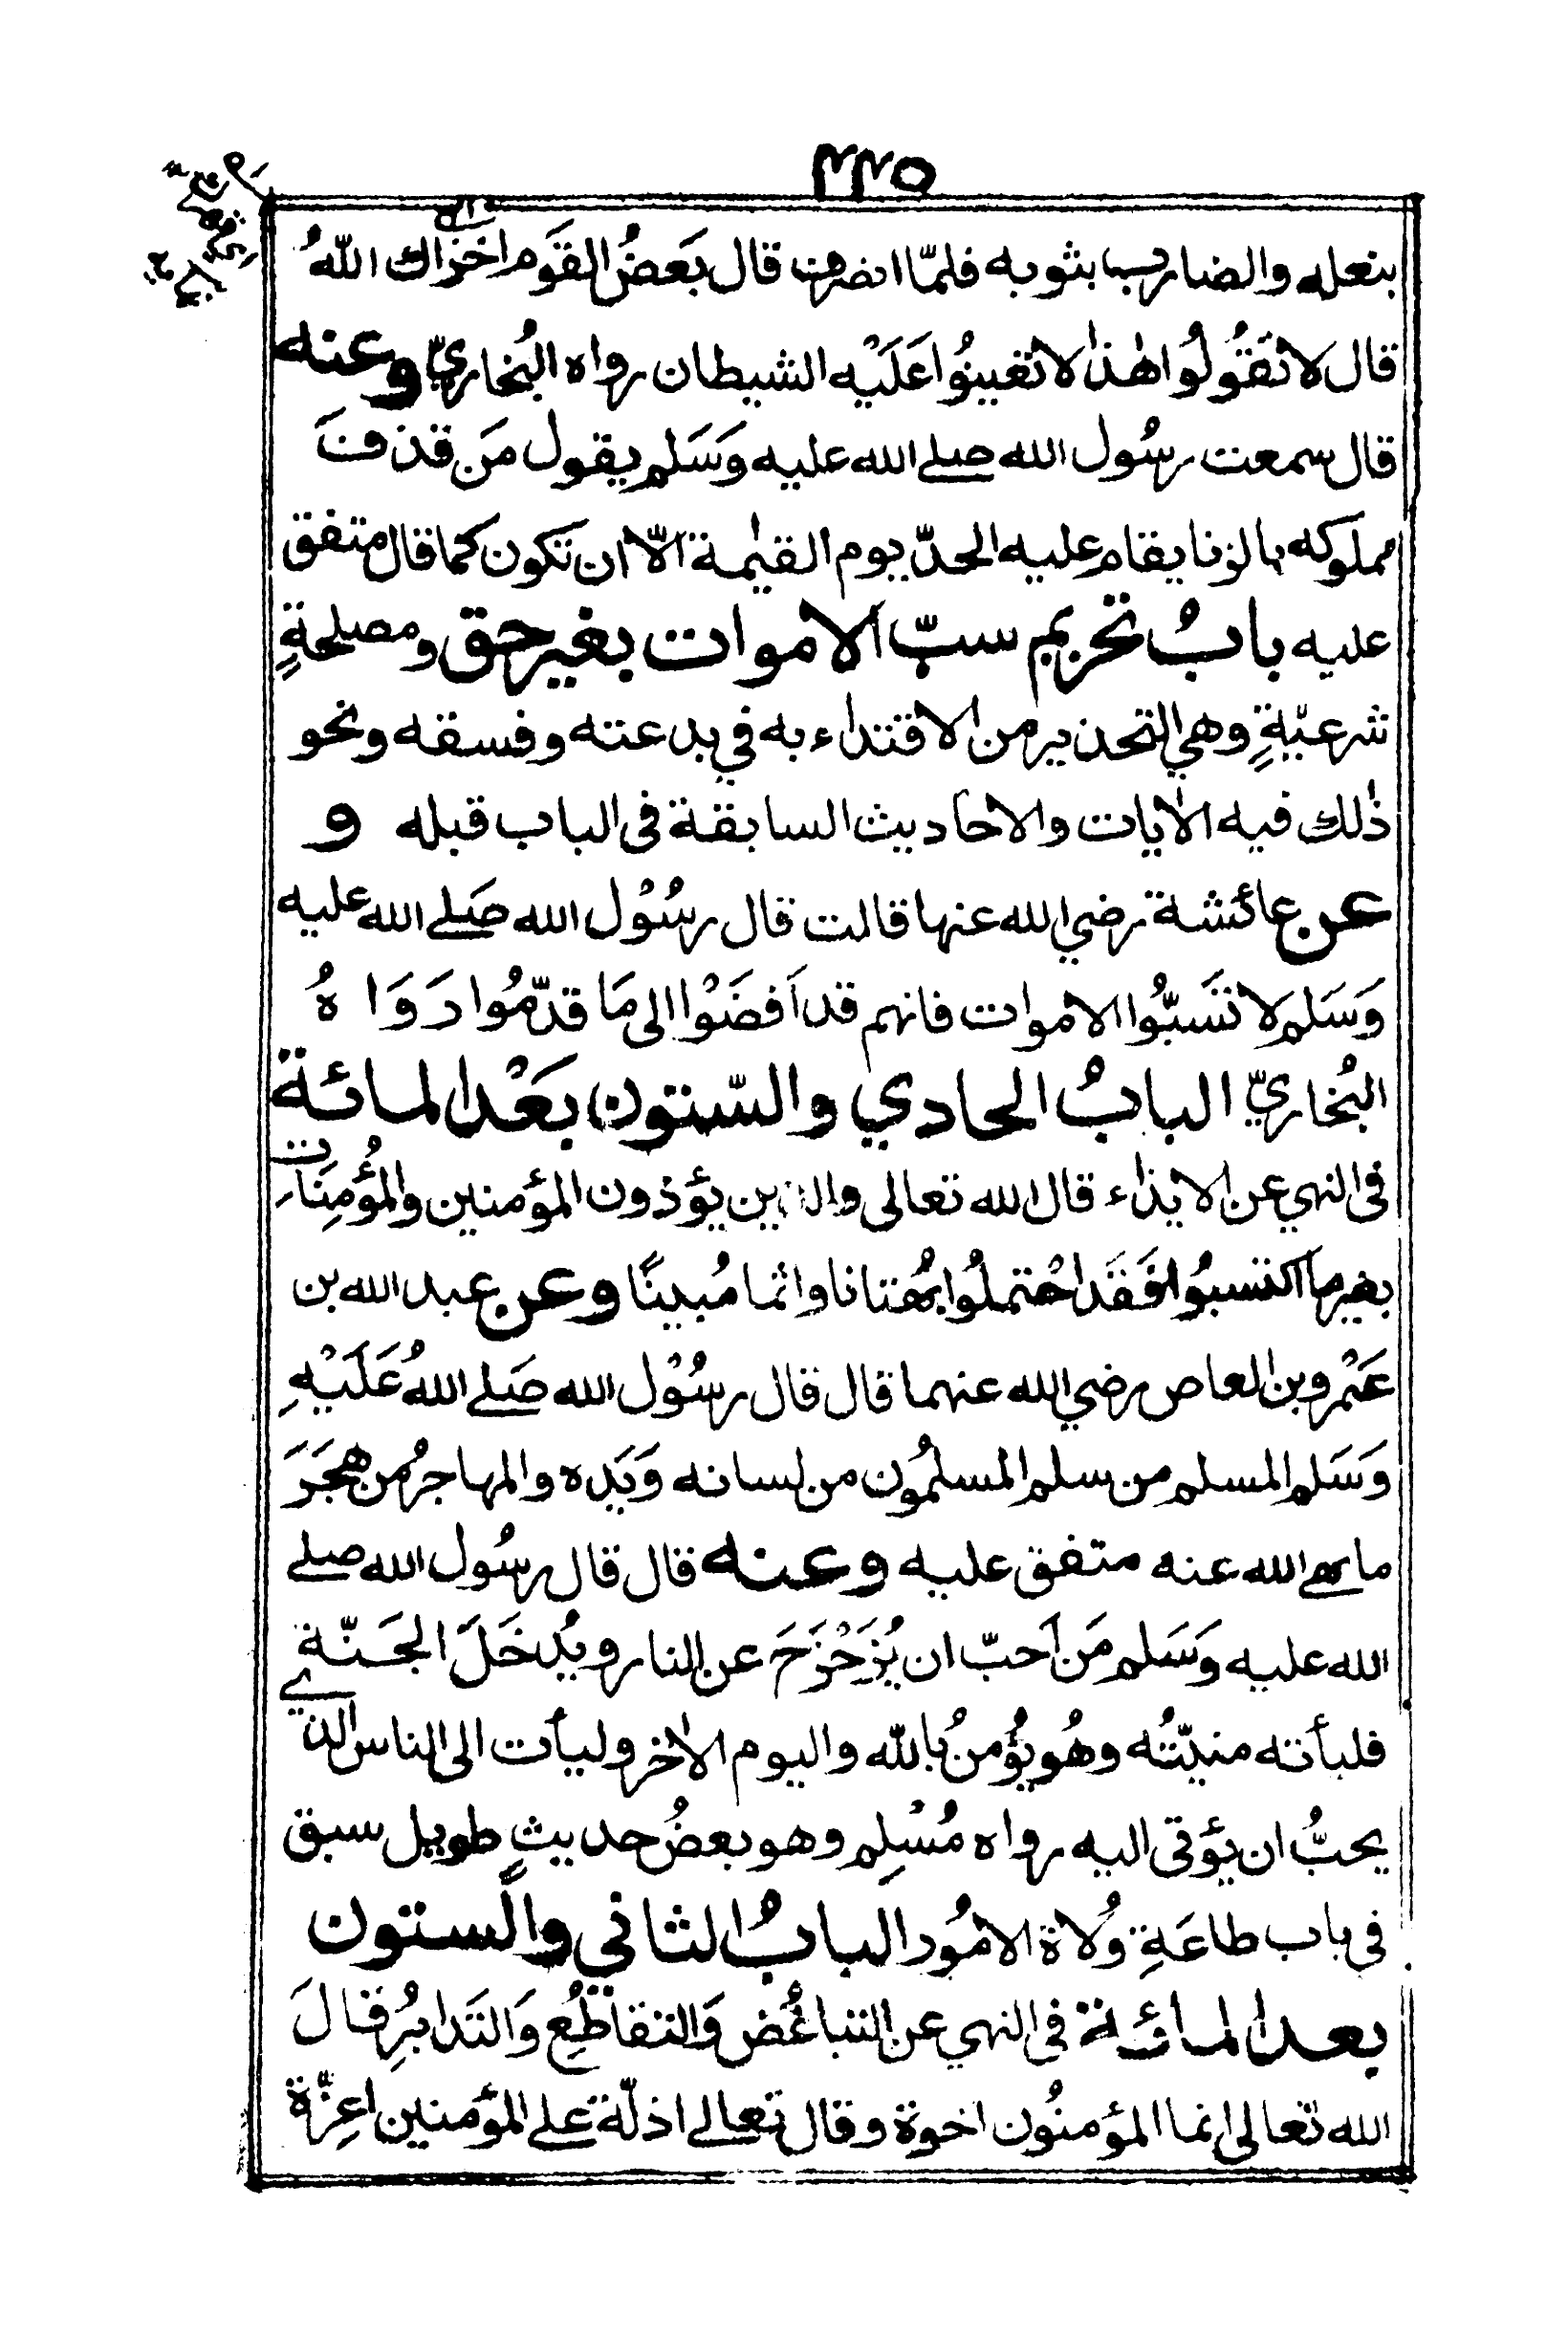 ٢٢٥
بنعله والضارب بثوبه فلمّا انصرف قال بَعَضُ القوَم اخزاك اللّٰهُ
قال لا تَقُولُوا هٰذا لا تعينوُا عَلَيْه الشيطان رواه البُخاريّ وعنه
قال سمعت رسُول الله صلے الله عليه وَسَلم يقول مَن قذفَ
مملوكه بالزنا يقام عليه الحدّ يوم القيٰمة الّا ان تكون كما قال متفق
عليه بابُ تحريم سبّ الاموات بغير حق ومصلحةٍ
شرعيّةٍ وهي التحذير من الاقتداء به في بدعته وفسقه ونحو
ذٰلك فيه الاٰيات والاحاديث السابقة فى الباب قبله و
عن عائشة رضي الله عنها قالت قال رسُوْل الله صَلے الله عليه
وَسَلم لا تَسَبُّوا الاموات فانهم قد اَفضَوْا الى مَا قدّمُوا رَوَاهُ
البُخاريّ البابُ الحادي والسّتون بَعْد المائة
فى النهي عن الايذاء قال الله تعالى والذين يؤذون المؤمنين والمُؤْمِنَات
بغير ما اكتسبُوا فَقَد احْتملُوا بُهْتانا واثما مُبينًا وعن عبد الله بن
عَمْرو بن العاص رضي الله عنهما قال قال رسُوْل الله صَلے اللهُ عَلَيْهِ
وَسَلم المسلم من سلم المسلمُون من لسانه وَيَده والمهاجرُ من هَجَرَ
ما نهى الله عنه متفق عليه وعنه قال قال رسُول الله صلے
الله عليه وَسَلم مَن اَحبّ ان يُزَحْزَحَ عن النار ويُدخَلَ الجَنّة
فليأته منيّتُه وهُو يُؤمنُ باللّه واليوم الاٰخر وليأت الى الناس الذي
يحبُّ ان يؤتى اليه رواه مُسْلِم وهو بعضُ حديثٍ طويل سبق
فى باب طاعَةِ وُلاة الامُور البابُ الثاني والستون
بعد المائة فى النهي عن التباغُض وَالتقاطُع وَالتَدابُرِ قالَ
الله تعالى انما المؤمنُون اخوة وقال تعالے اذلّة علے المؤمنين اعِزّة